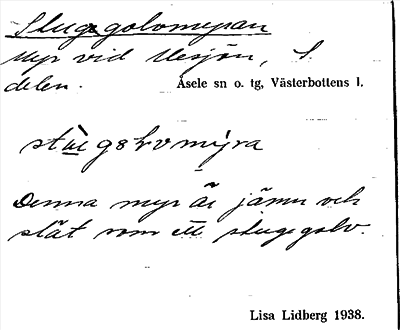 Stuggolvmyran
Myr vid Uesjön, S.
delen.
Åsele sn o. tg, Västerbottens l.
Denna myr är jämn och
slät som ett stuggolv.
Lisa Lidberg 1938.